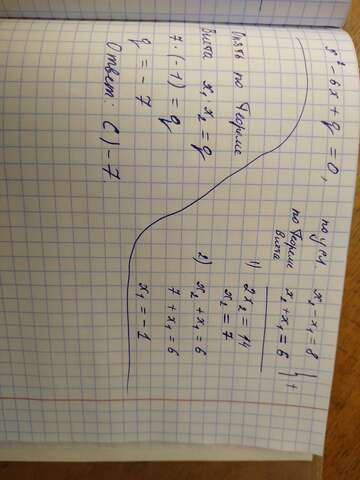 x² - 6x + q = 0, по усл. x₂ - x₁ = 8
по теореме Виета x₂ + x₁ = 6 } +
1) 2x₂ = 14
x₂ = 7
2) x₂ + x₁ = 6
7 + x₁ = 6
x₁ = -1
Опять по теореме
Виета x₁ · x₂ = q
7 · (-1) = q
q = -7
Ответ: C) -7.